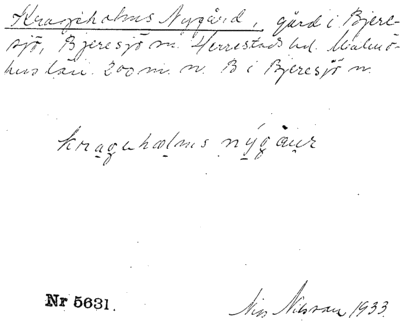 Krageholms Nygård, gård i Bjere-
sjö, Bjeresjö sn. Herrestads hd. Malmö-
hus län. 200 m. n. B i Bjeresjö n.
kragehalms nýgaur
Nr 5631.
Nils Nilsson 1933.